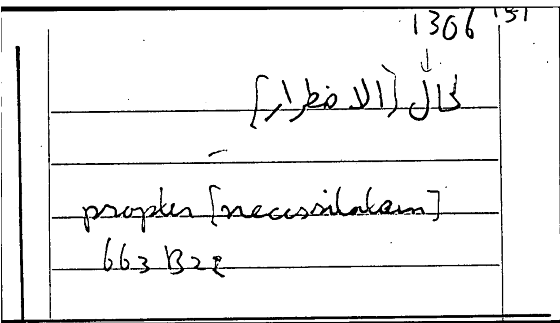 1306 151
↓
لحال [الاضطرار]
propter [necessitatem]
663 B22